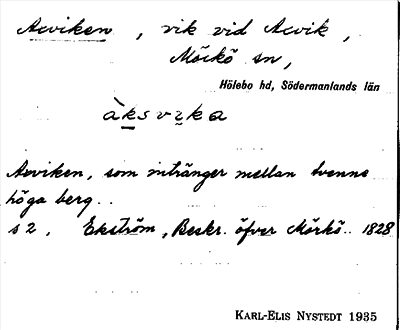 Axviken, vik vid Axvik,
Mörkö sn,
Hölebo hd, Södermanlands län
àksvika
Axviken, som intränger mellan tvenne
höga berg..
s 2. Ekström, Beskr. öfver Mörkö.. 1828
KARL-ELIS NYSTEDT 1935